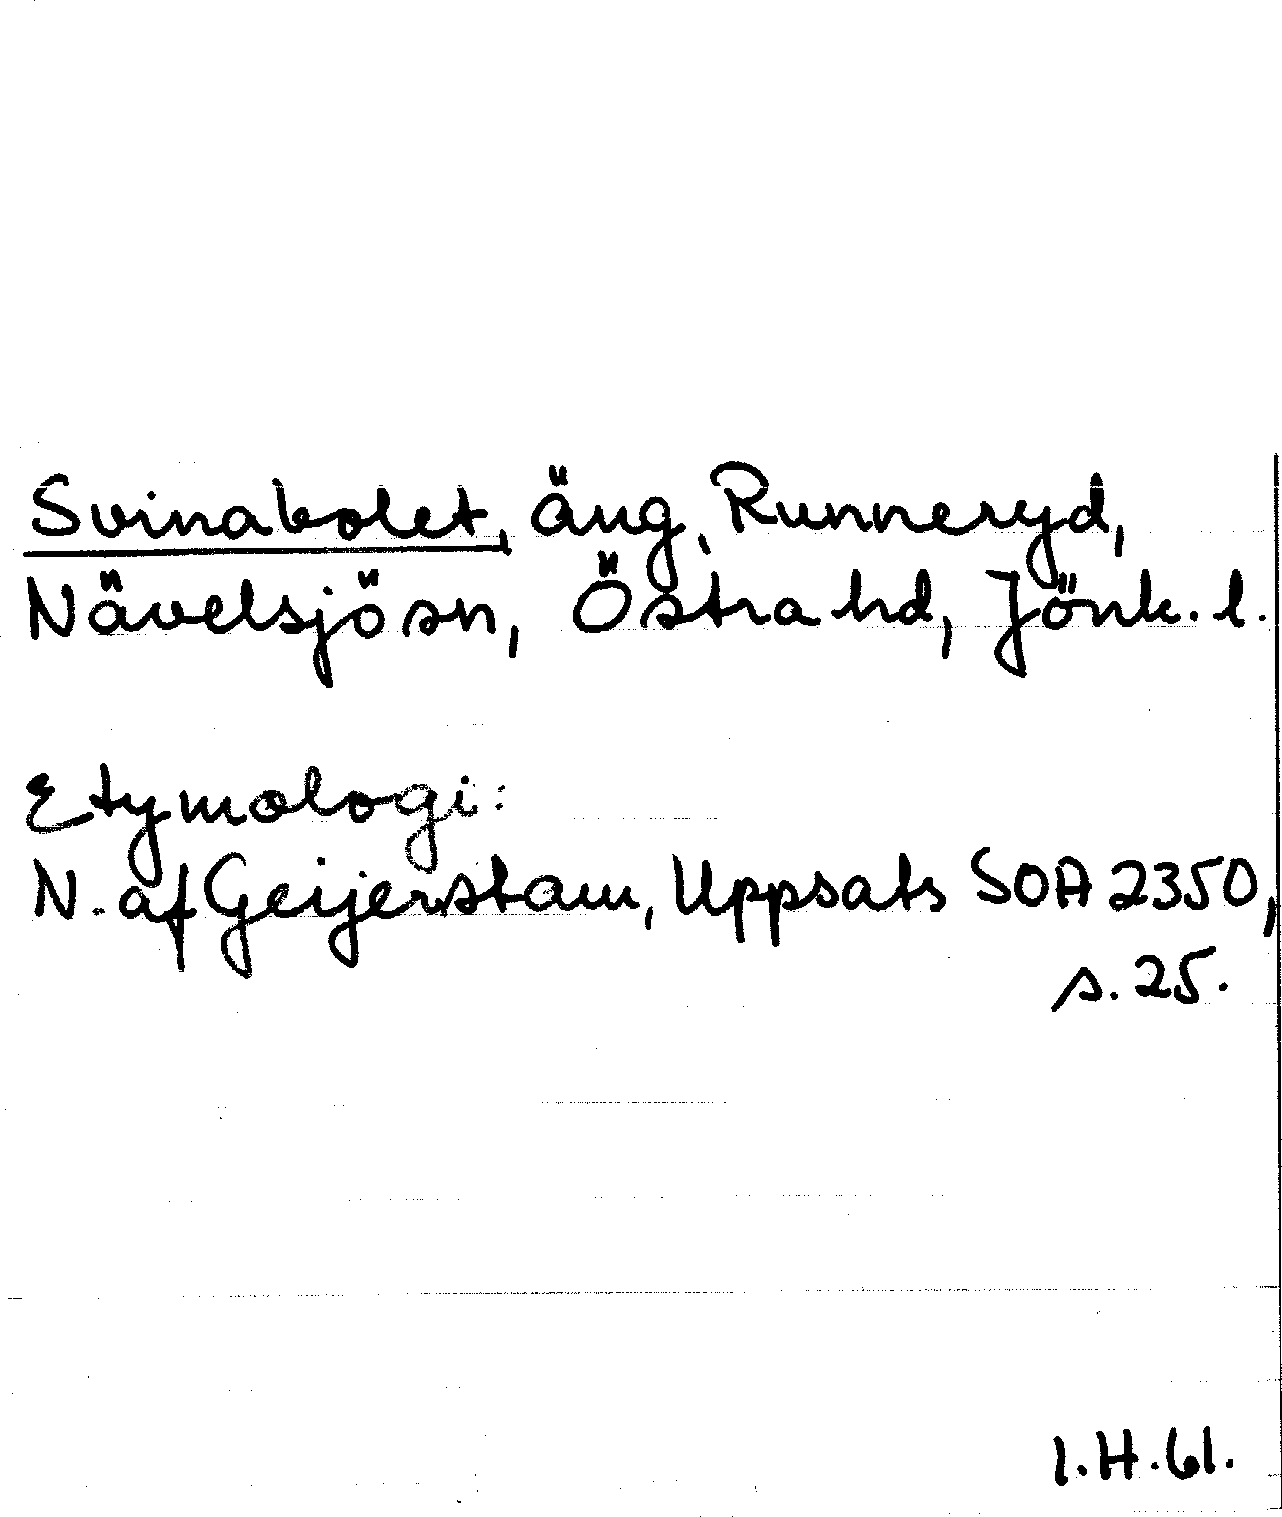 Svinabolet, äng, Runneryd,
Nävelsjö sn, Östra hd, Jönk. l.
Etymologi:
N. af Geijerstam, Uppsats SOA 2350,
s. 25.
I.H.61.